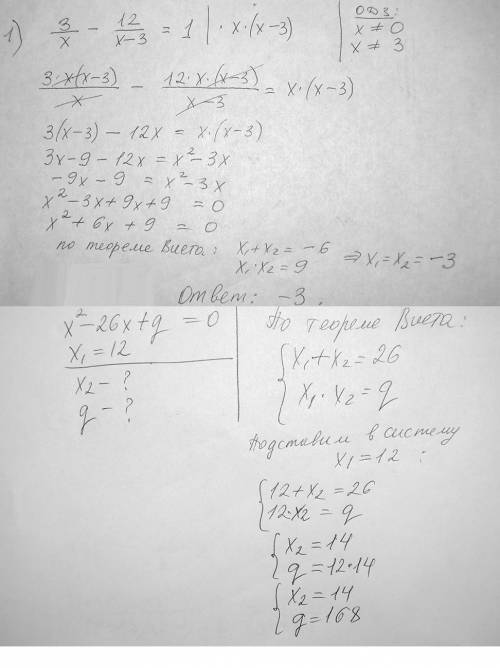 1) 3/x - 12/(x-3) = 1 | · x · (x-3)
ОДЗ:
x ≠ 0
x ≠ 3
3·x(x-3)/x - 12·x·(x-3)/(x-3) = x·(x-3)
3(x-3) - 12x = x·(x-3)
3x - 9 - 12x = x² - 3x
-9x - 9 = x² - 3x
x² - 3x + 9x + 9 = 0
x² + 6x + 9 = 0
по теореме Виета: x₁+x₂ = -6
x₁·x₂ = 9 ⇒ x₁=x₂= -3
Ответ: -3.
x² - 26x + q = 0
x₁ = 12
x₂ - ?
q - ?
По теореме Виета:
{x₁+x₂ = 26
x₁·x₂ = q
Подставим в систему
x₁ = 12 :
{12+x₂ = 26
12·x₂ = q
{x₂ = 14
q = 12·14
{x₂ = 14
q = 168